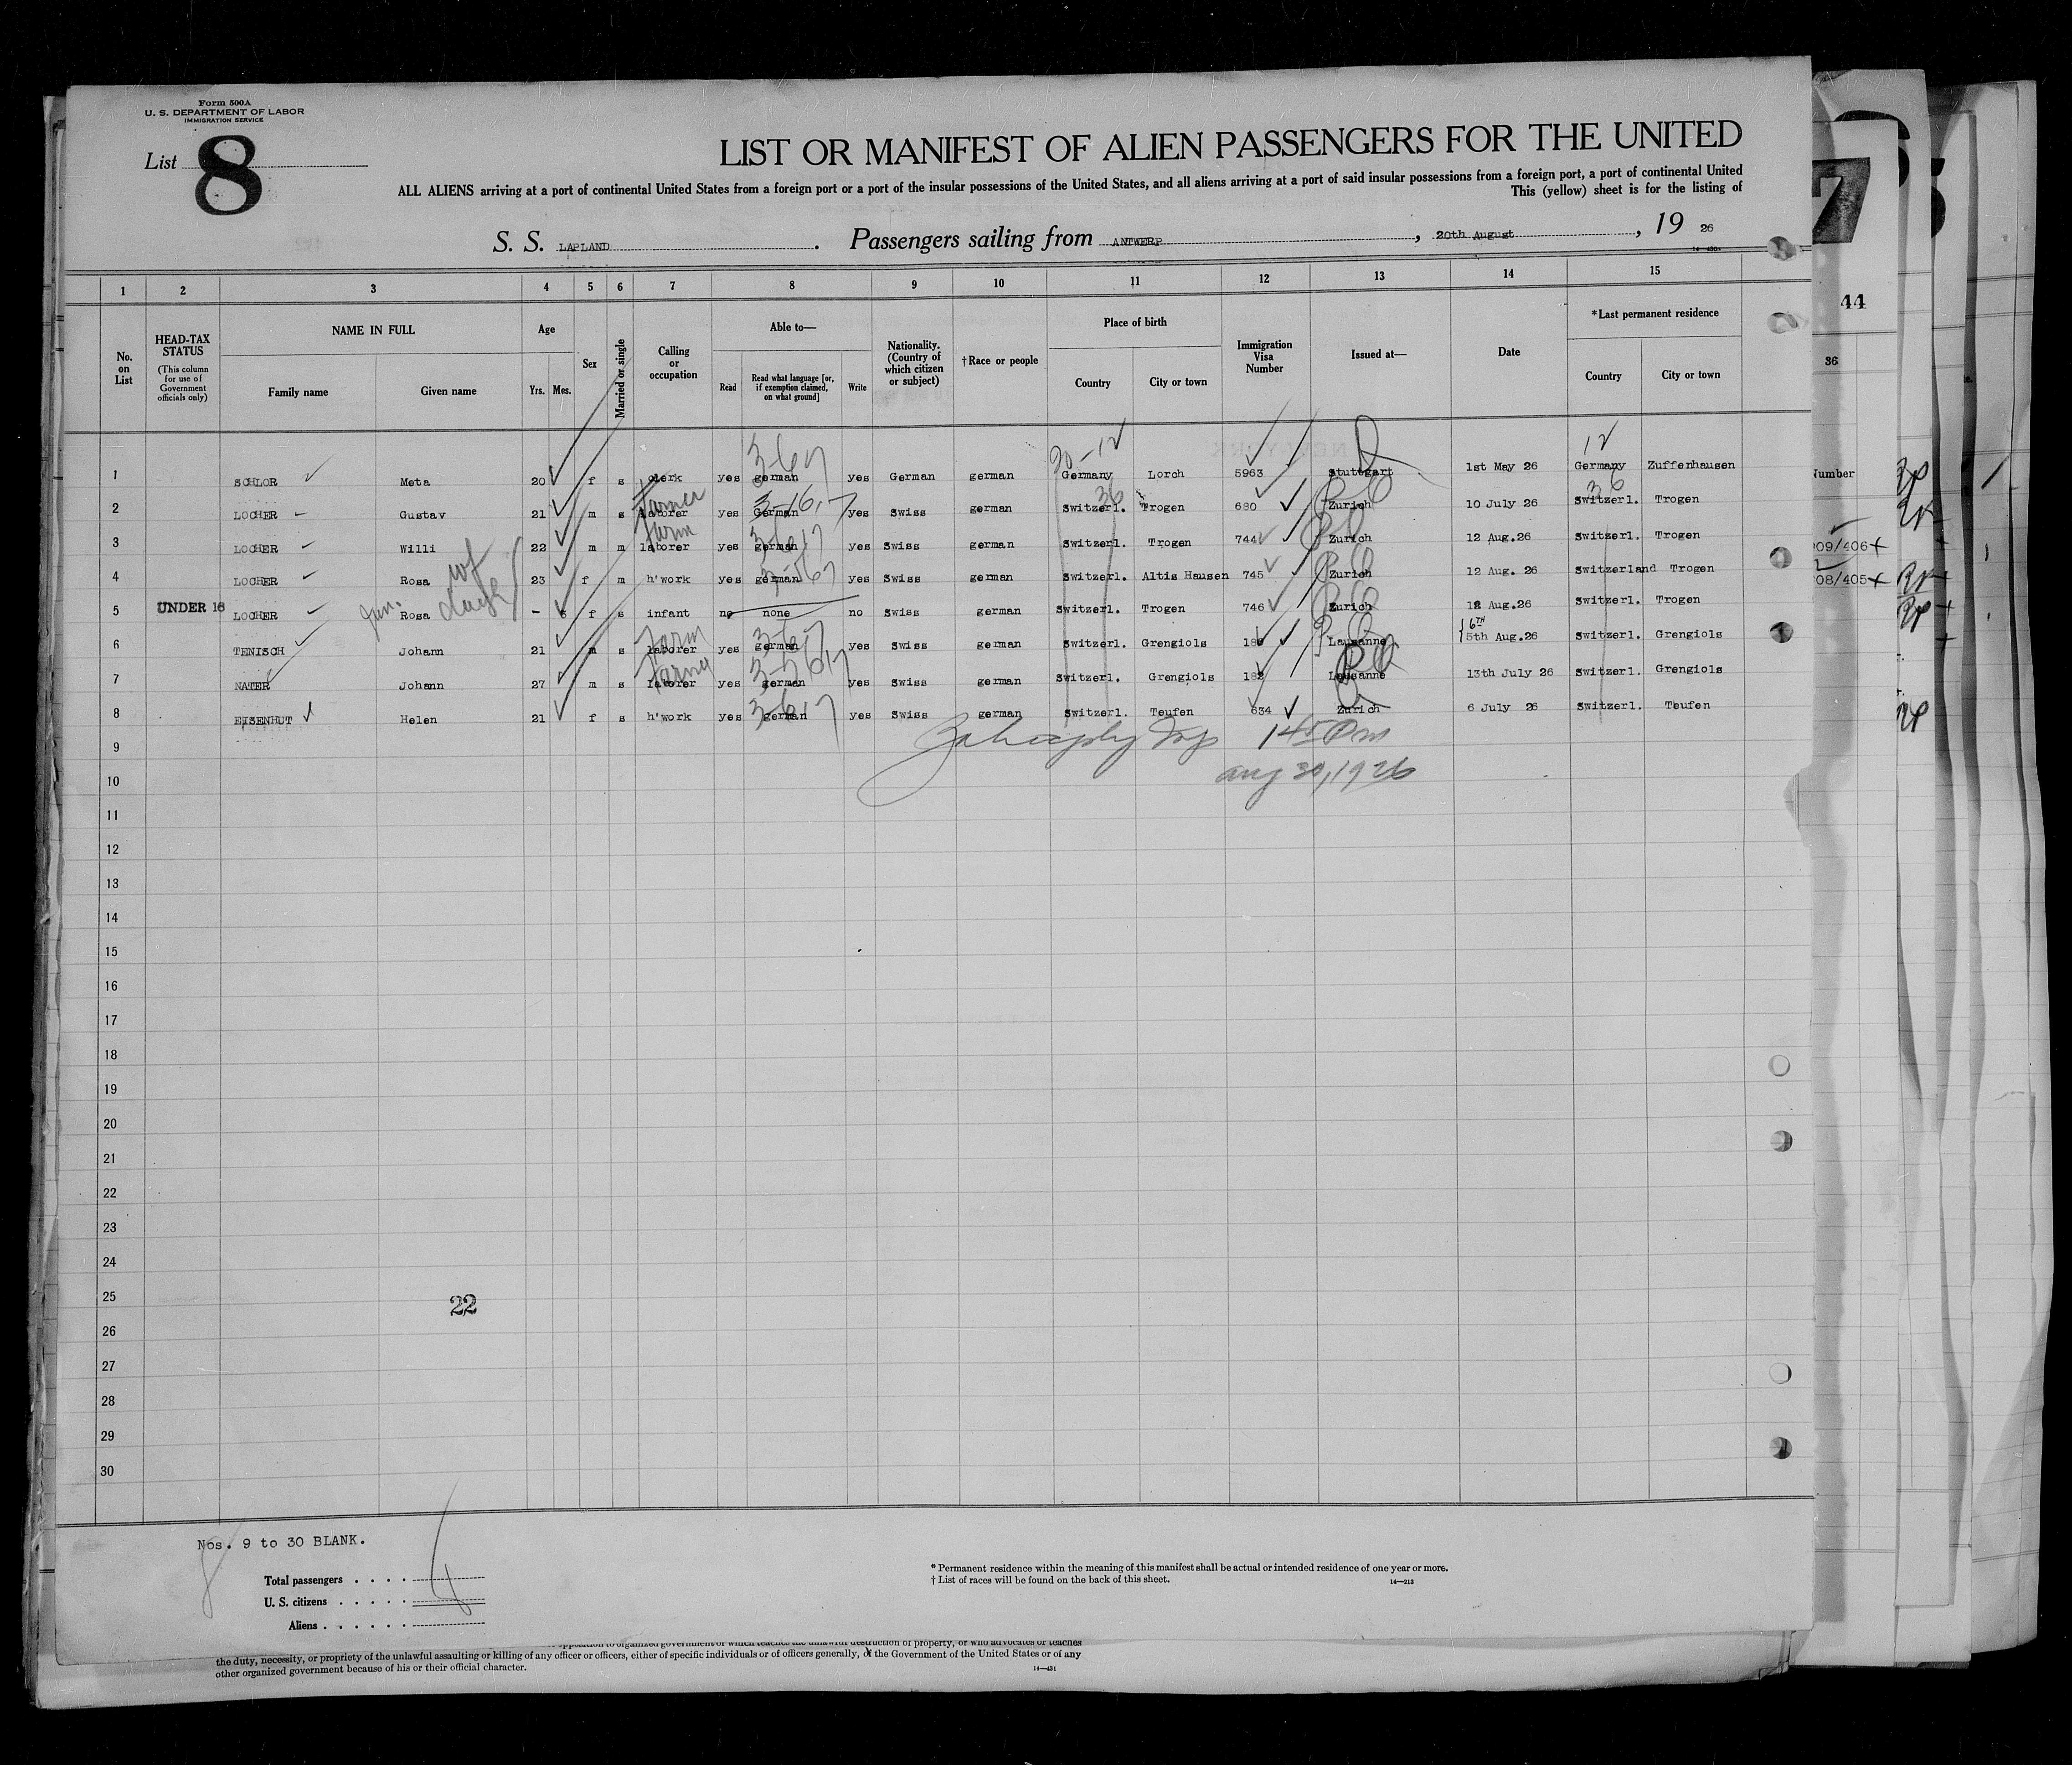 Form 500A
U. S. DEPARTMENT OF LABOR
IMMIGRATION SERVICE
List 8
LIST OR MANIFEST OF ALIEN PASSENGERS FOR THE UNITED
ALL ALIENS arriving at a port of continental United States from a foreign port or a port of the insular possessions of the United States, and all aliens arriving at a port of said insular possessions from a foreign port, a port of continental United
This (yellow) sheet is for the listing of
S. S. LAPLAND. Passengers sailing from ANTWERP, 20th August, 19 26
1 2 3 4 5 6 7 8 9 10 11 12 13 14 15
No. on List
HEAD-TAX STATUS
(This column for use of Government officials only)
NAME IN FULL
Family name Given name
Age
Yrs. Mos.
Sex
Married or single
Calling or occupation
Able to—
Read Read what language [or, if exemption claimed, on what ground] Write
Nationality. (Country of which citizen or subject)
†Race or people
Place of birth
Country City or town
Immigration Visa Number
Issued at—
Date
*Last permanent residence
Country City or town
44
36
7
20-12 12
1 SCHLOR Meta 20 f s clerk yes german yes German german Germany Lorch 5963 Stuttgart 1st May 26 Germany Zuffenhausen
36 36
2 LOCHER Gustav 21 m s farmer laborer yes German yes Swiss german Switzerl. Trogen 680 Zurich 10 July 26 Switzerl. Trogen
3 LOCHER Willi 22 m m farm laborer yes german yes Swiss german Switzerl. Trogen 744 Zurich 12 Aug.26 Switzerl. Trogen
4 LOCHER Rosa wf 23 f m h'work yes german yes Swiss german Switzerl. Altis Hausen 745 Zurich 12 Aug. 26 Switzerland Trogen
5 UNDER 16 LOCHER jun. Rosa daugh - 6 f s infant no none no Swiss german Switzerl. Trogen 746 Zurich 12 Aug.26 Switzerl. Trogen
6 TENISCH Johann 21 m s farm laborer yes german yes Swiss german Switzerl. Grengiols Lausanne 6TH 5th Aug.26 Switzerl. Grengiols
7 NATER Johann 27 m s farm laborer yes german yes Swiss german Switzerl. Grengiols Lausanne 13th July 26 Switzerl. Grengiols
8 EISENHUT Helen 21 f s h'work yes german yes Swiss german Switzerl. Teufen 634 Zurich 6 July 26 Switzerl. Teufen
Number
09/406+
08/405+
9
145 Pm
10
Aug 30, 1926
11
12
13
14
15
16
17
18
19
20
21
22
23
24
25
22
26
27
28
29
30
Nos. 9 to 30 BLANK.
Total passengers
U. S. citizens
Aliens
* Permanent residence within the meaning of this manifest shall be actual or intended residence of one year or more.
† List of races will be found on the back of this sheet.
14—213
opposition to organized government or which teaches the unlawful destruction of property, or who advocates or teaches
the duty, necessity, or propriety of the unlawful assaulting or killing of any officer or officers, either of specific individuals or of officers generally, of the Government of the United States or of any
other organized government because of his or their official character.
14—431